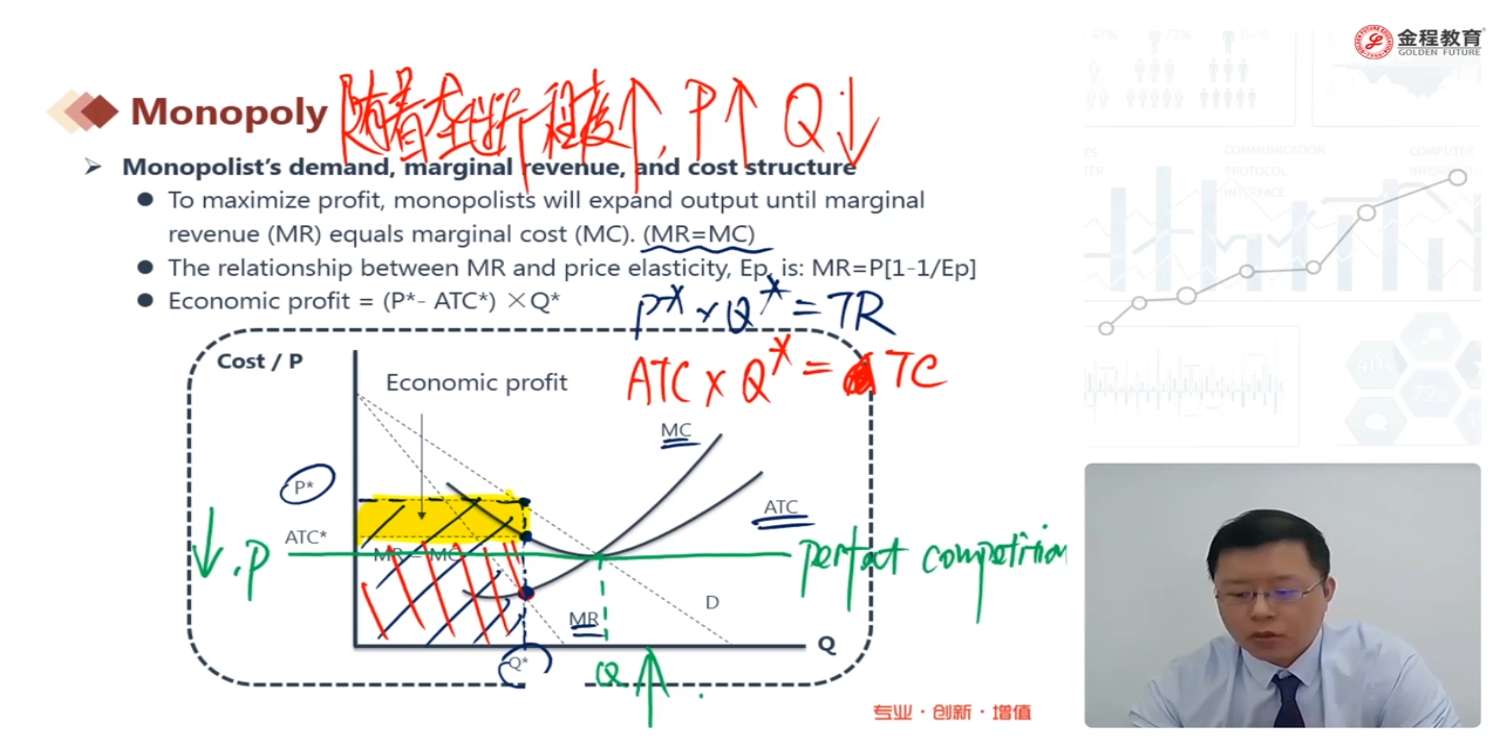 金程教育
GOLDEN FUTURE
Monopoly 随着垄断程度↑, P↑ Q↓
➢ Monopolist's demand, marginal revenue, and cost structure
● To maximize profit, monopolists will expand output until marginal
revenue (MR) equals marginal cost (MC). (MR=MC)
● The relationship between MR and price elasticity, Ep, is: MR=P[1-1/Ep]
● Economic profit = (P*- ATC*) ×Q*
P* × Q* = TR
ATC × Q* = TC
Cost / P
Economic profit
MC
P*
ATC
ATC*
↓.P
MR = MC
perfact competition
D
MR
Q
Q*
Q ↑
专业·创新·增值
COMMUNICATION
PROTOCOL
INTERFACE